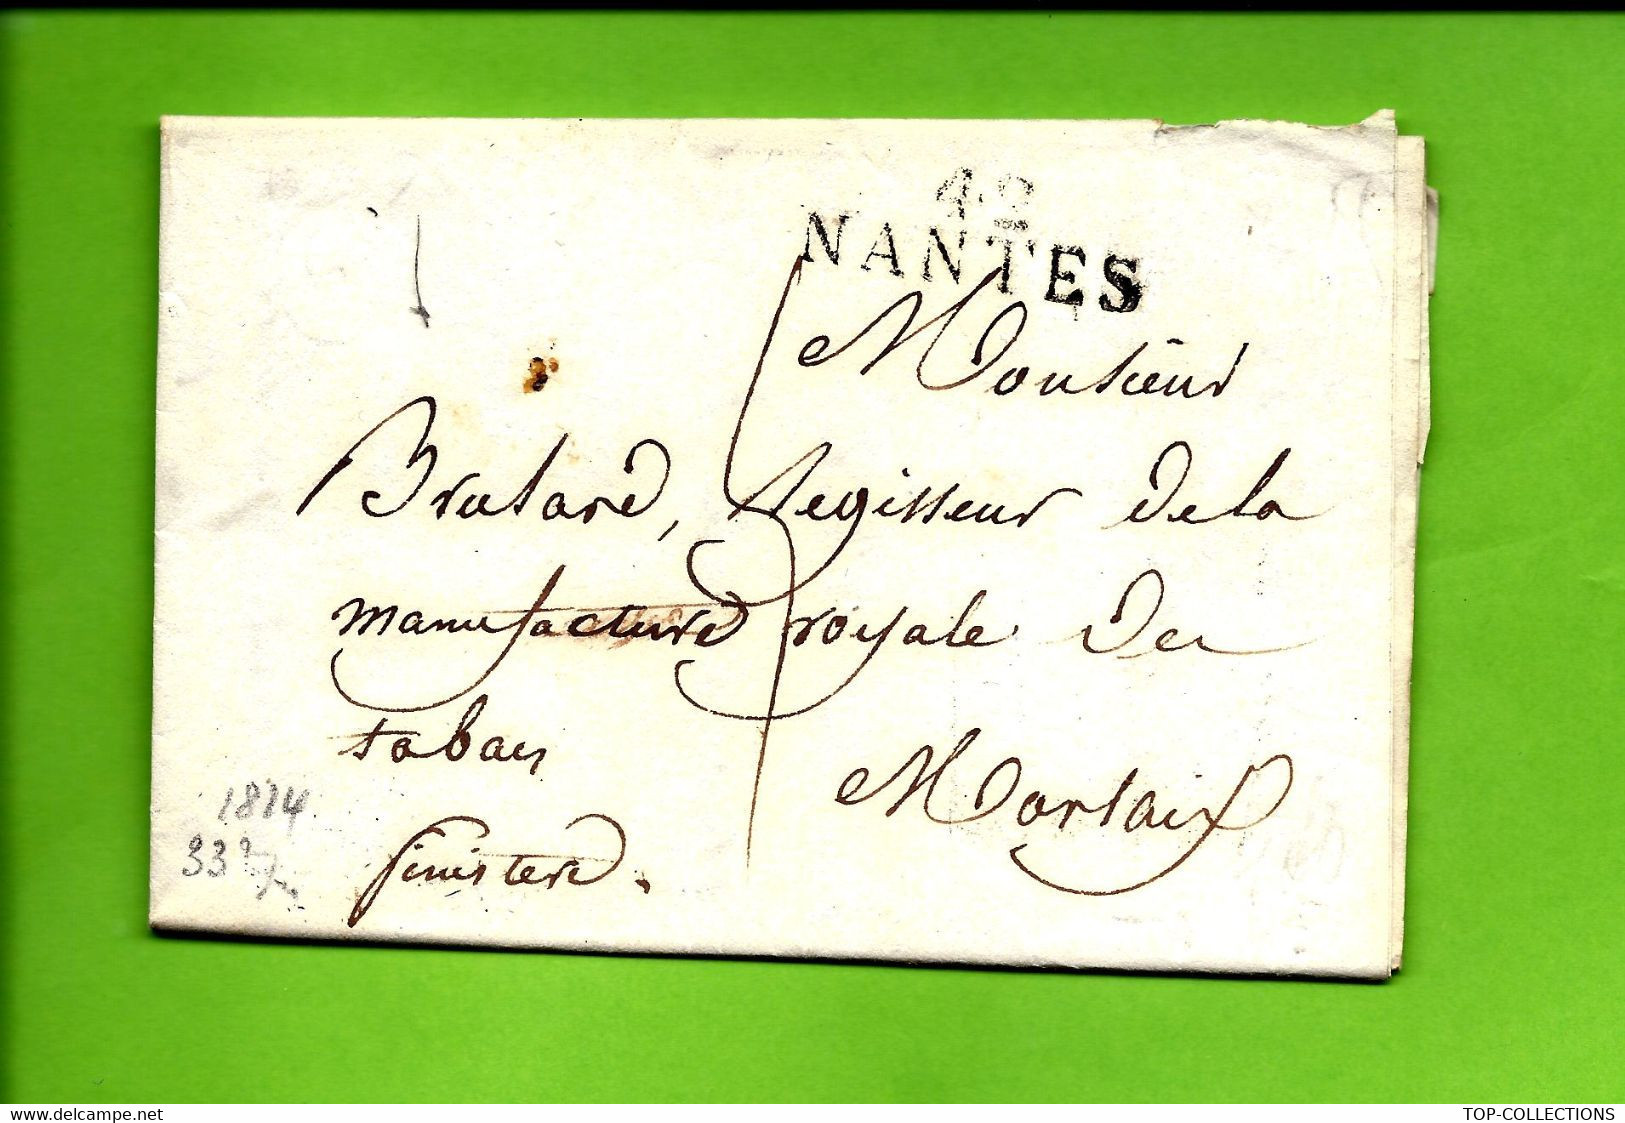 42
NANTES
Monsieur
Brutard, Regisseur de la
manufacture royale de
tabacs
Morlaix
finistere.
1814
33
www.delcampe.net
TOP-COLLECTIONS